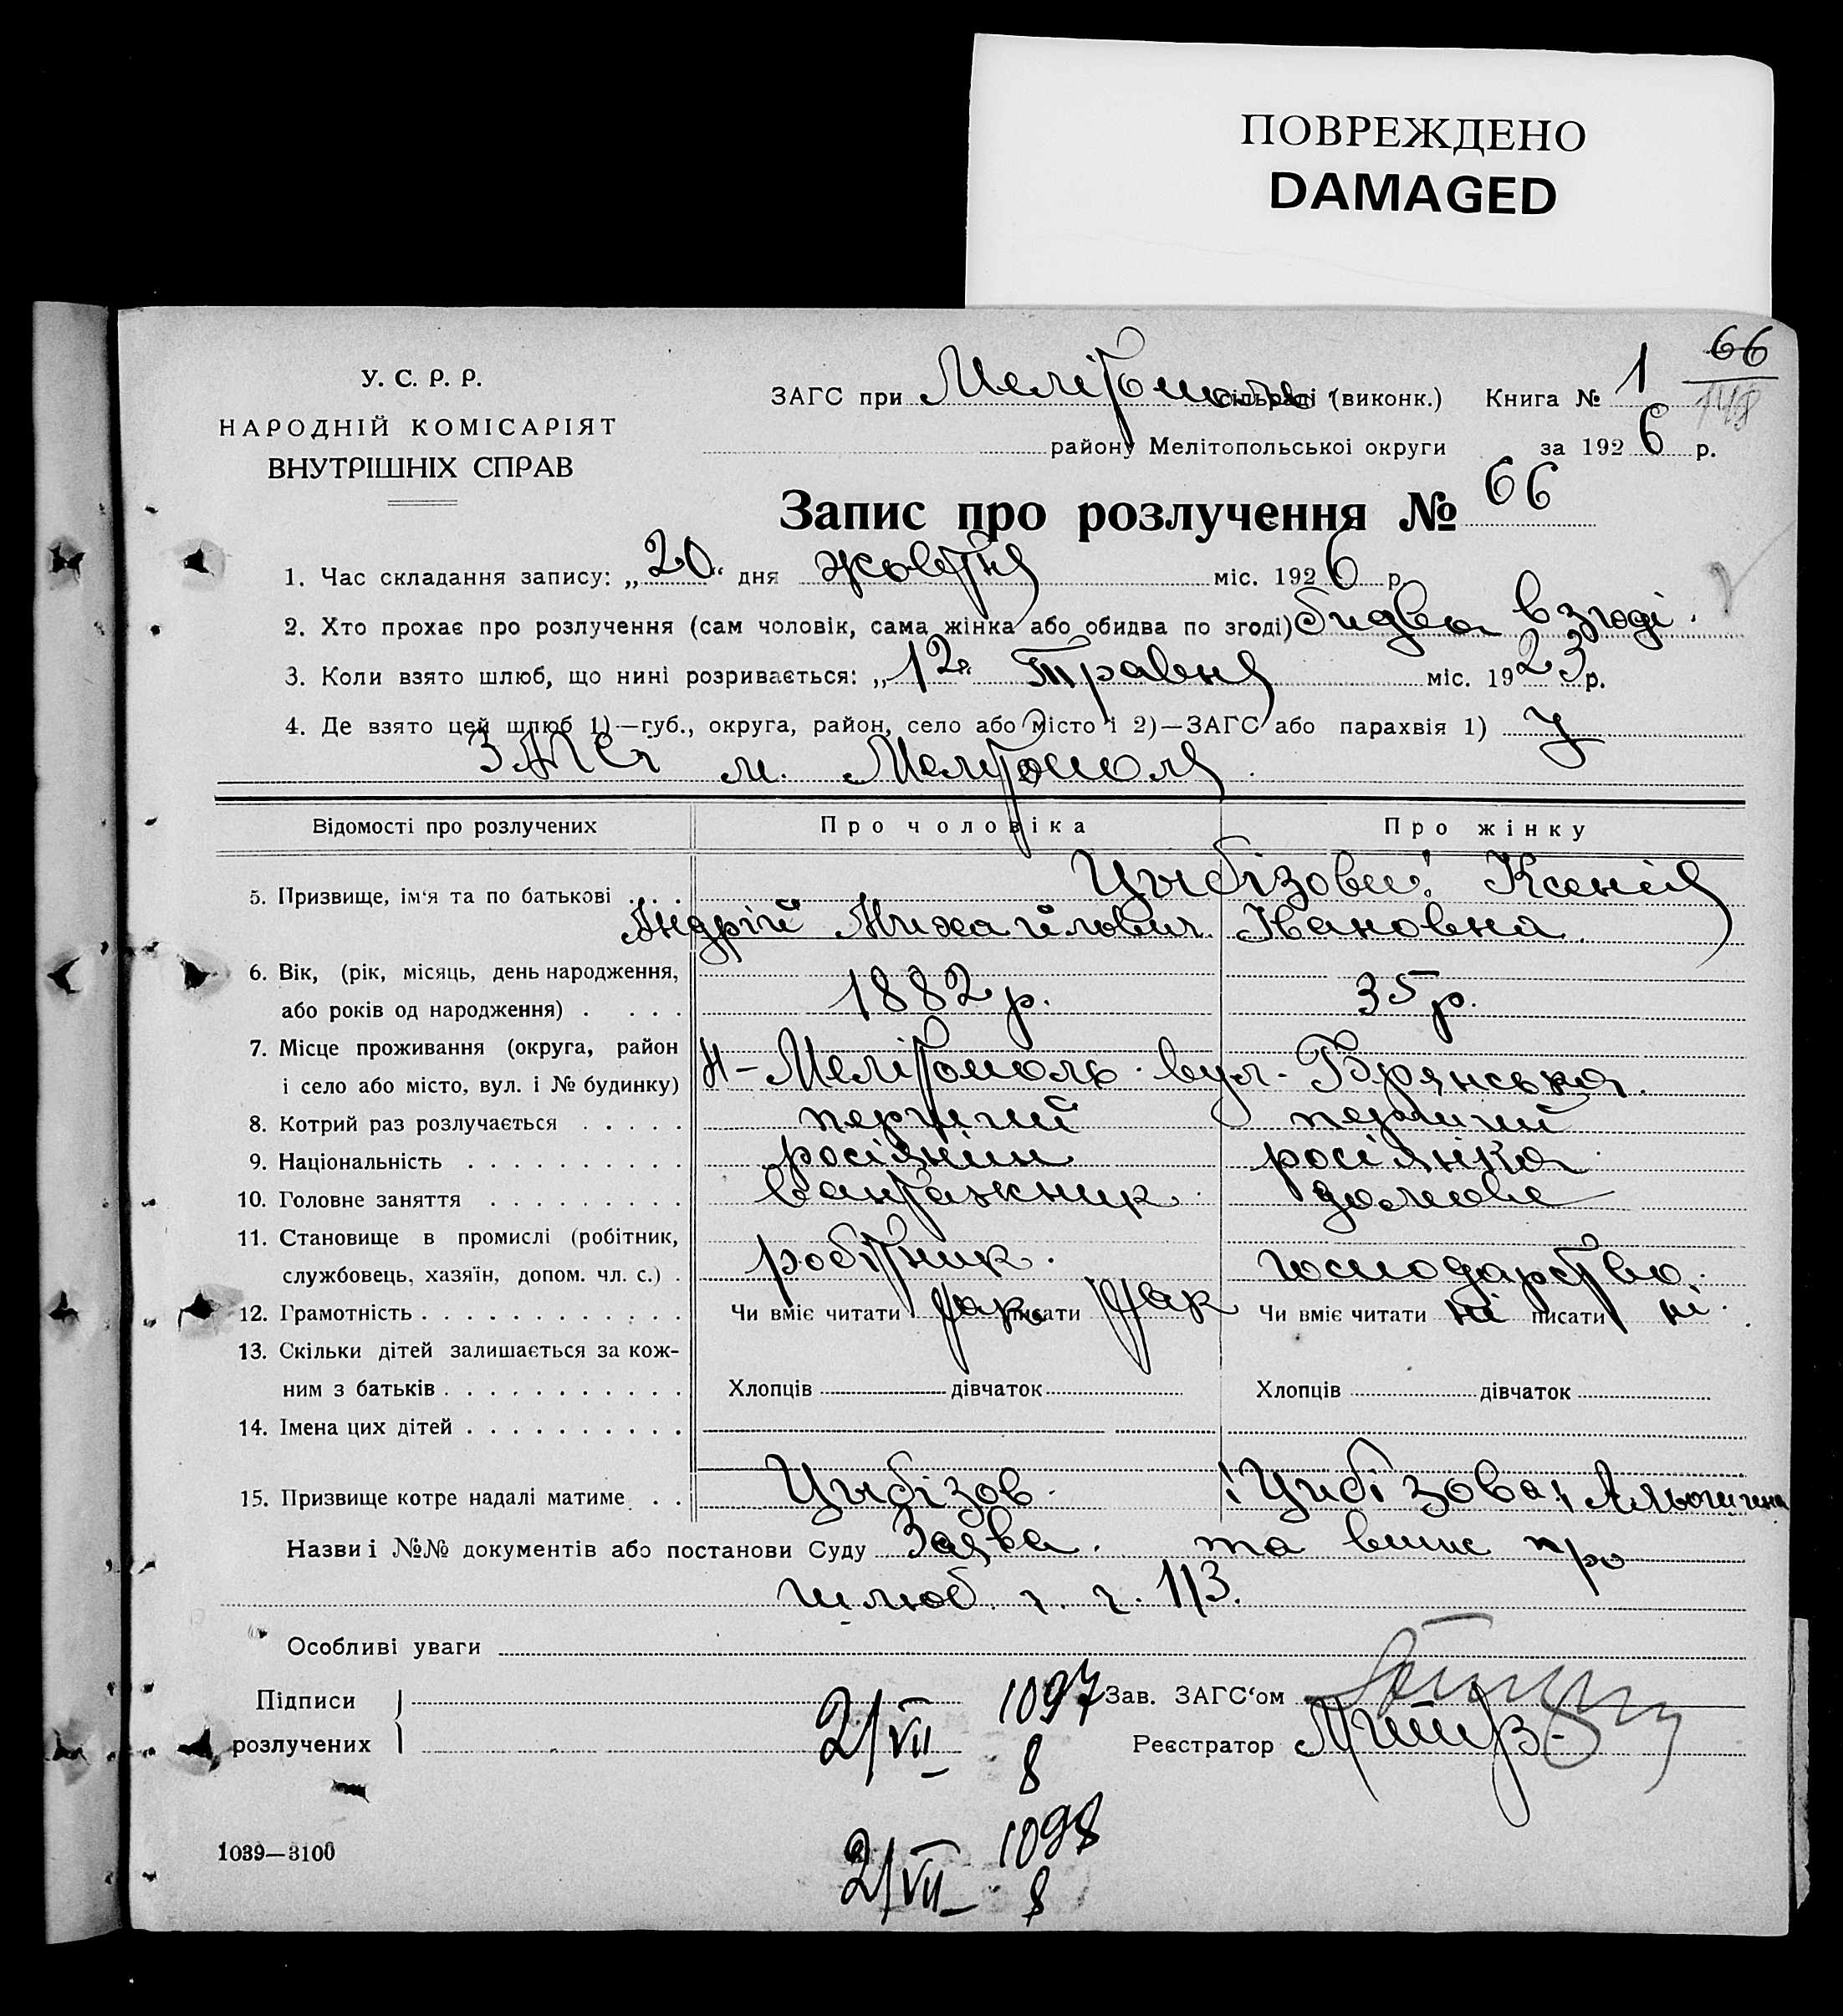 ПОВРЕЖДЕНО
DAMAGED
66
148
У. С. Р. Р.
НАРОДНІЙ КОМІСАРІЯТ
ВНУТРІШНІХ СПРАВ
ЗАГС при Мелітополь сільраді (виконк.) Книга № 1
району Мелітопольської округи за 1926 р.
Запис про розлучення № 66
1. Час складання запису: „20“ дня жовтня міс. 1926 р.
2. Хто прохає про розлучення (сам чоловік, сама жінка або обидва по згоді) обидва в згоді.
3. Коли взято шлюб, що нині розривається: „12“ травня міс. 1923 р.
4. Де взято цей шлюб 1)—губ., округа, район, село або місто і 2)—ЗАГС або парахвія 1) у
ЗАГСі м. Мелітополя.
Відомості про розлучених Про чоловіка Про жінку
5. Призвище, ім‘я та по батькові . . . Цыбізови: Ксенія
Андрій Михайлович Івановна
6. Вік, (рік, місяць, день народження,
або років од народження) . . . . 1882 р. 35 р.
7. Місце проживання (округа, район
і село або місто, вул. і № будинку) Н-Мелітополь. вул. Брянська.
8. Котрий раз розлучається . . . . . перший перший
9. Національність . . . . . . . . . . росіянин росіянка
10. Головне заняття . . . . . . . . . вантажник домове
11. Становище в промислі (робітник,
службовець, хазяїн, допом. чл. с.) . робітник. господарство.
12. Грамотність . . . . . . . . . . . . Чи вміє читати так писати так Чи вміє читати ні писати ні.
13. Скільки дітей залишається за кож-
ним з батьків . . . . . . . . . . . Хлопців дівчаток Хлопців дівчаток
14. Імена цих дітей . . . . . . . . . .
15. Призвище котре надалі матиме . . Цыбізов. Цибізова; Альошина
Назви і №№ документів або постанови Суду Заява. та випис про
шлюб. 113.
Особливі уваги
Підписи 2/VII 1097 Зав. ЗАГС‘ом
розлучених 8 Реєстратор
2/VII 1098
8
1039—3100